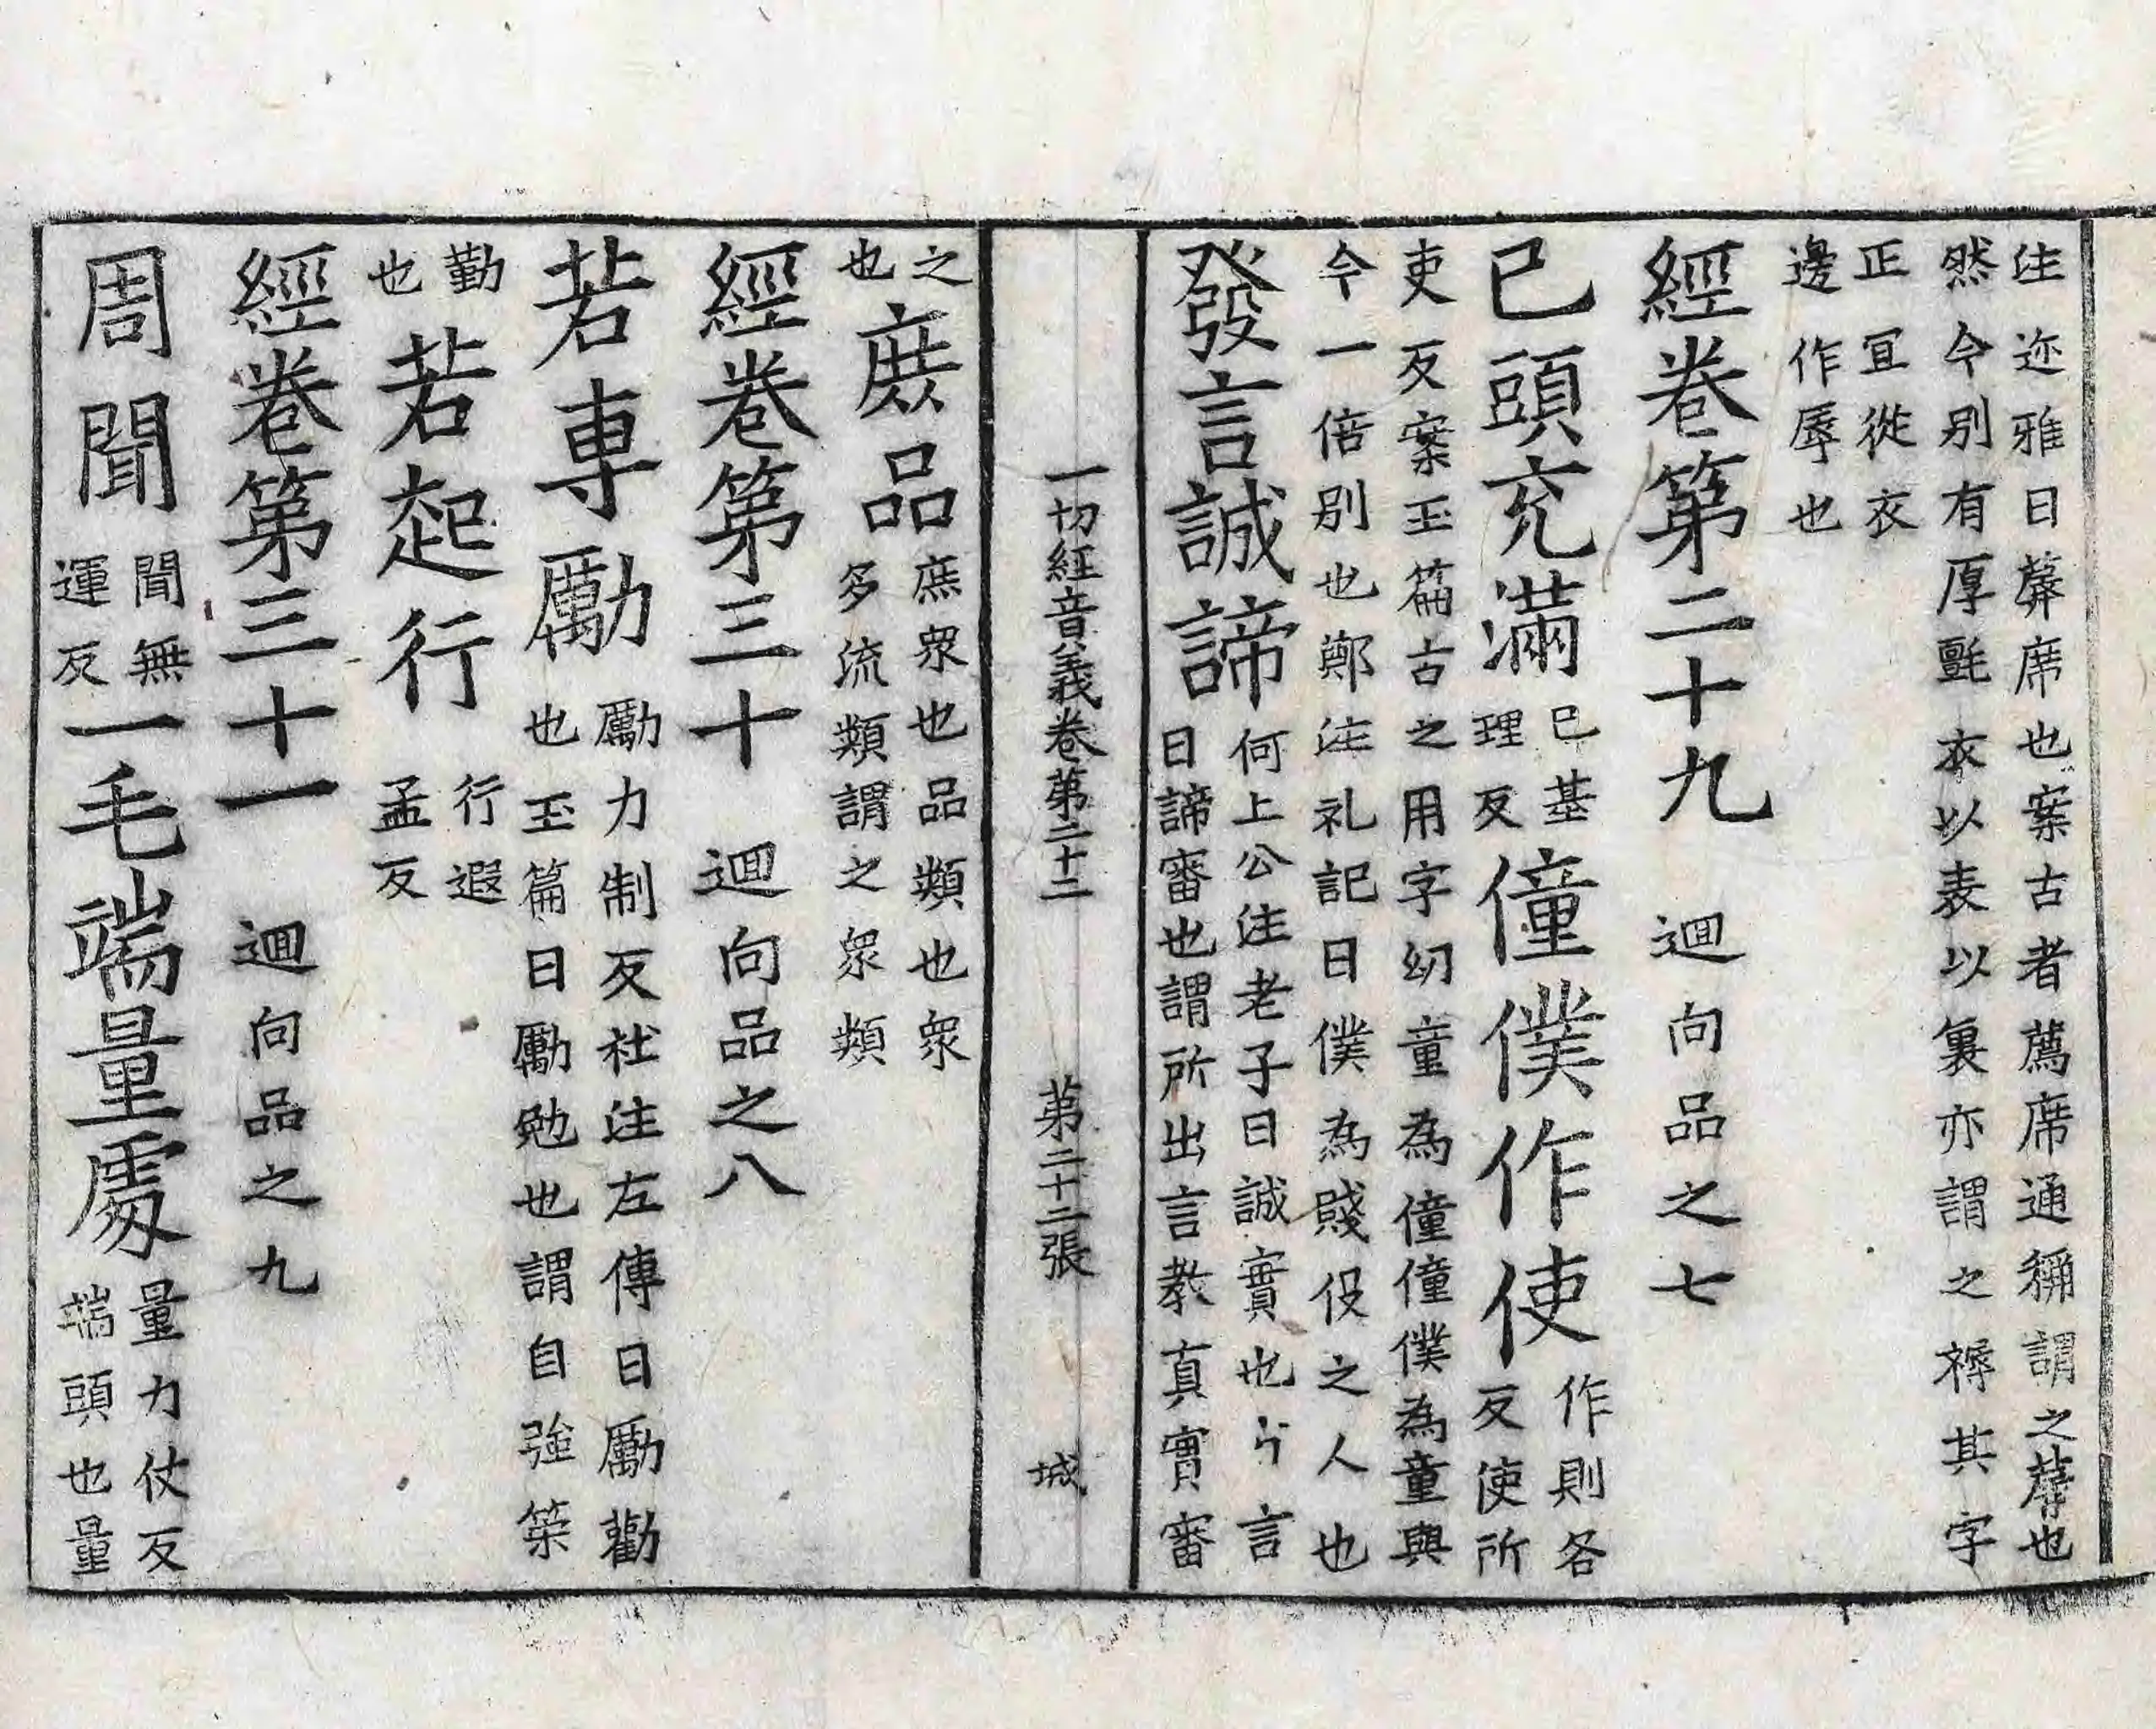 注迩雅曰蓐席也案古者薦席通稱謂之蓐也
然今別有厚氈衣以表以裏亦謂之褥其字
正冝從衣
邊作辱也
經卷第二十九 迴向品之七
已頭充滿 已基
理反 僮僕作使 作則各
反使所
吏反案玉篇古之用字幼童為僮僮僕為童與
今一倍別也鄭注礼記曰僕為賤伇之人也
發言誠諦 何上公注老子曰誠實也言
曰諦審也謂所出言教真實審
一切經音義卷第二十二 第二十二張 城
之
也 庻品 庶衆也品類也衆
多流類謂之衆類
經卷第三十 迴向品之八
若專勵 勵力制反社注左傳曰勵勸
也玉篇曰勵勉也謂自強䇿
勤
也 若起行 行遐
孟反
經卷第三十一 迴向品之九
周聞 聞無
運反 一毛端量處 量力仗反
端頭也量